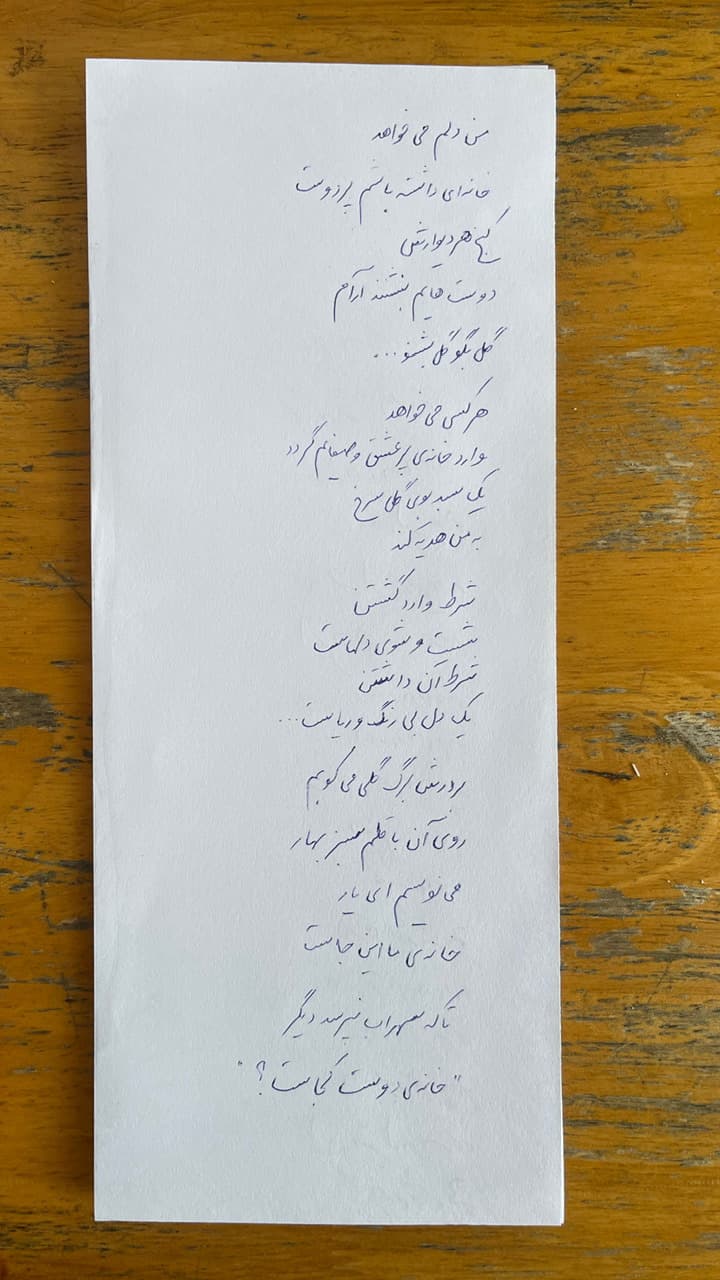 من دلم می خواهد
خانه‌ای داشته باشم پر دوست
کنج هر دیوارش
دوست هایم بنشینند آرام
گل بگو گل بشنو...
هر کسی می خواهد
وارد خانه‌ی پر عشق و صفایم گردد
یک سبد بوی گل سرخ
به من هدیه کند
شرط وارد گشتن
شست و شوی دلهاست
شرط آن داشتن
یک دل بی رنگ و ریاست...
بر درش برگ گلی می کوبم
روی آن با قلم سبز بهار
می نویسم ای یار
خانه‌ی ما این جاست
تا که سهراب نپرسد دیگر
"خانه‌ی دوست کجاست؟"